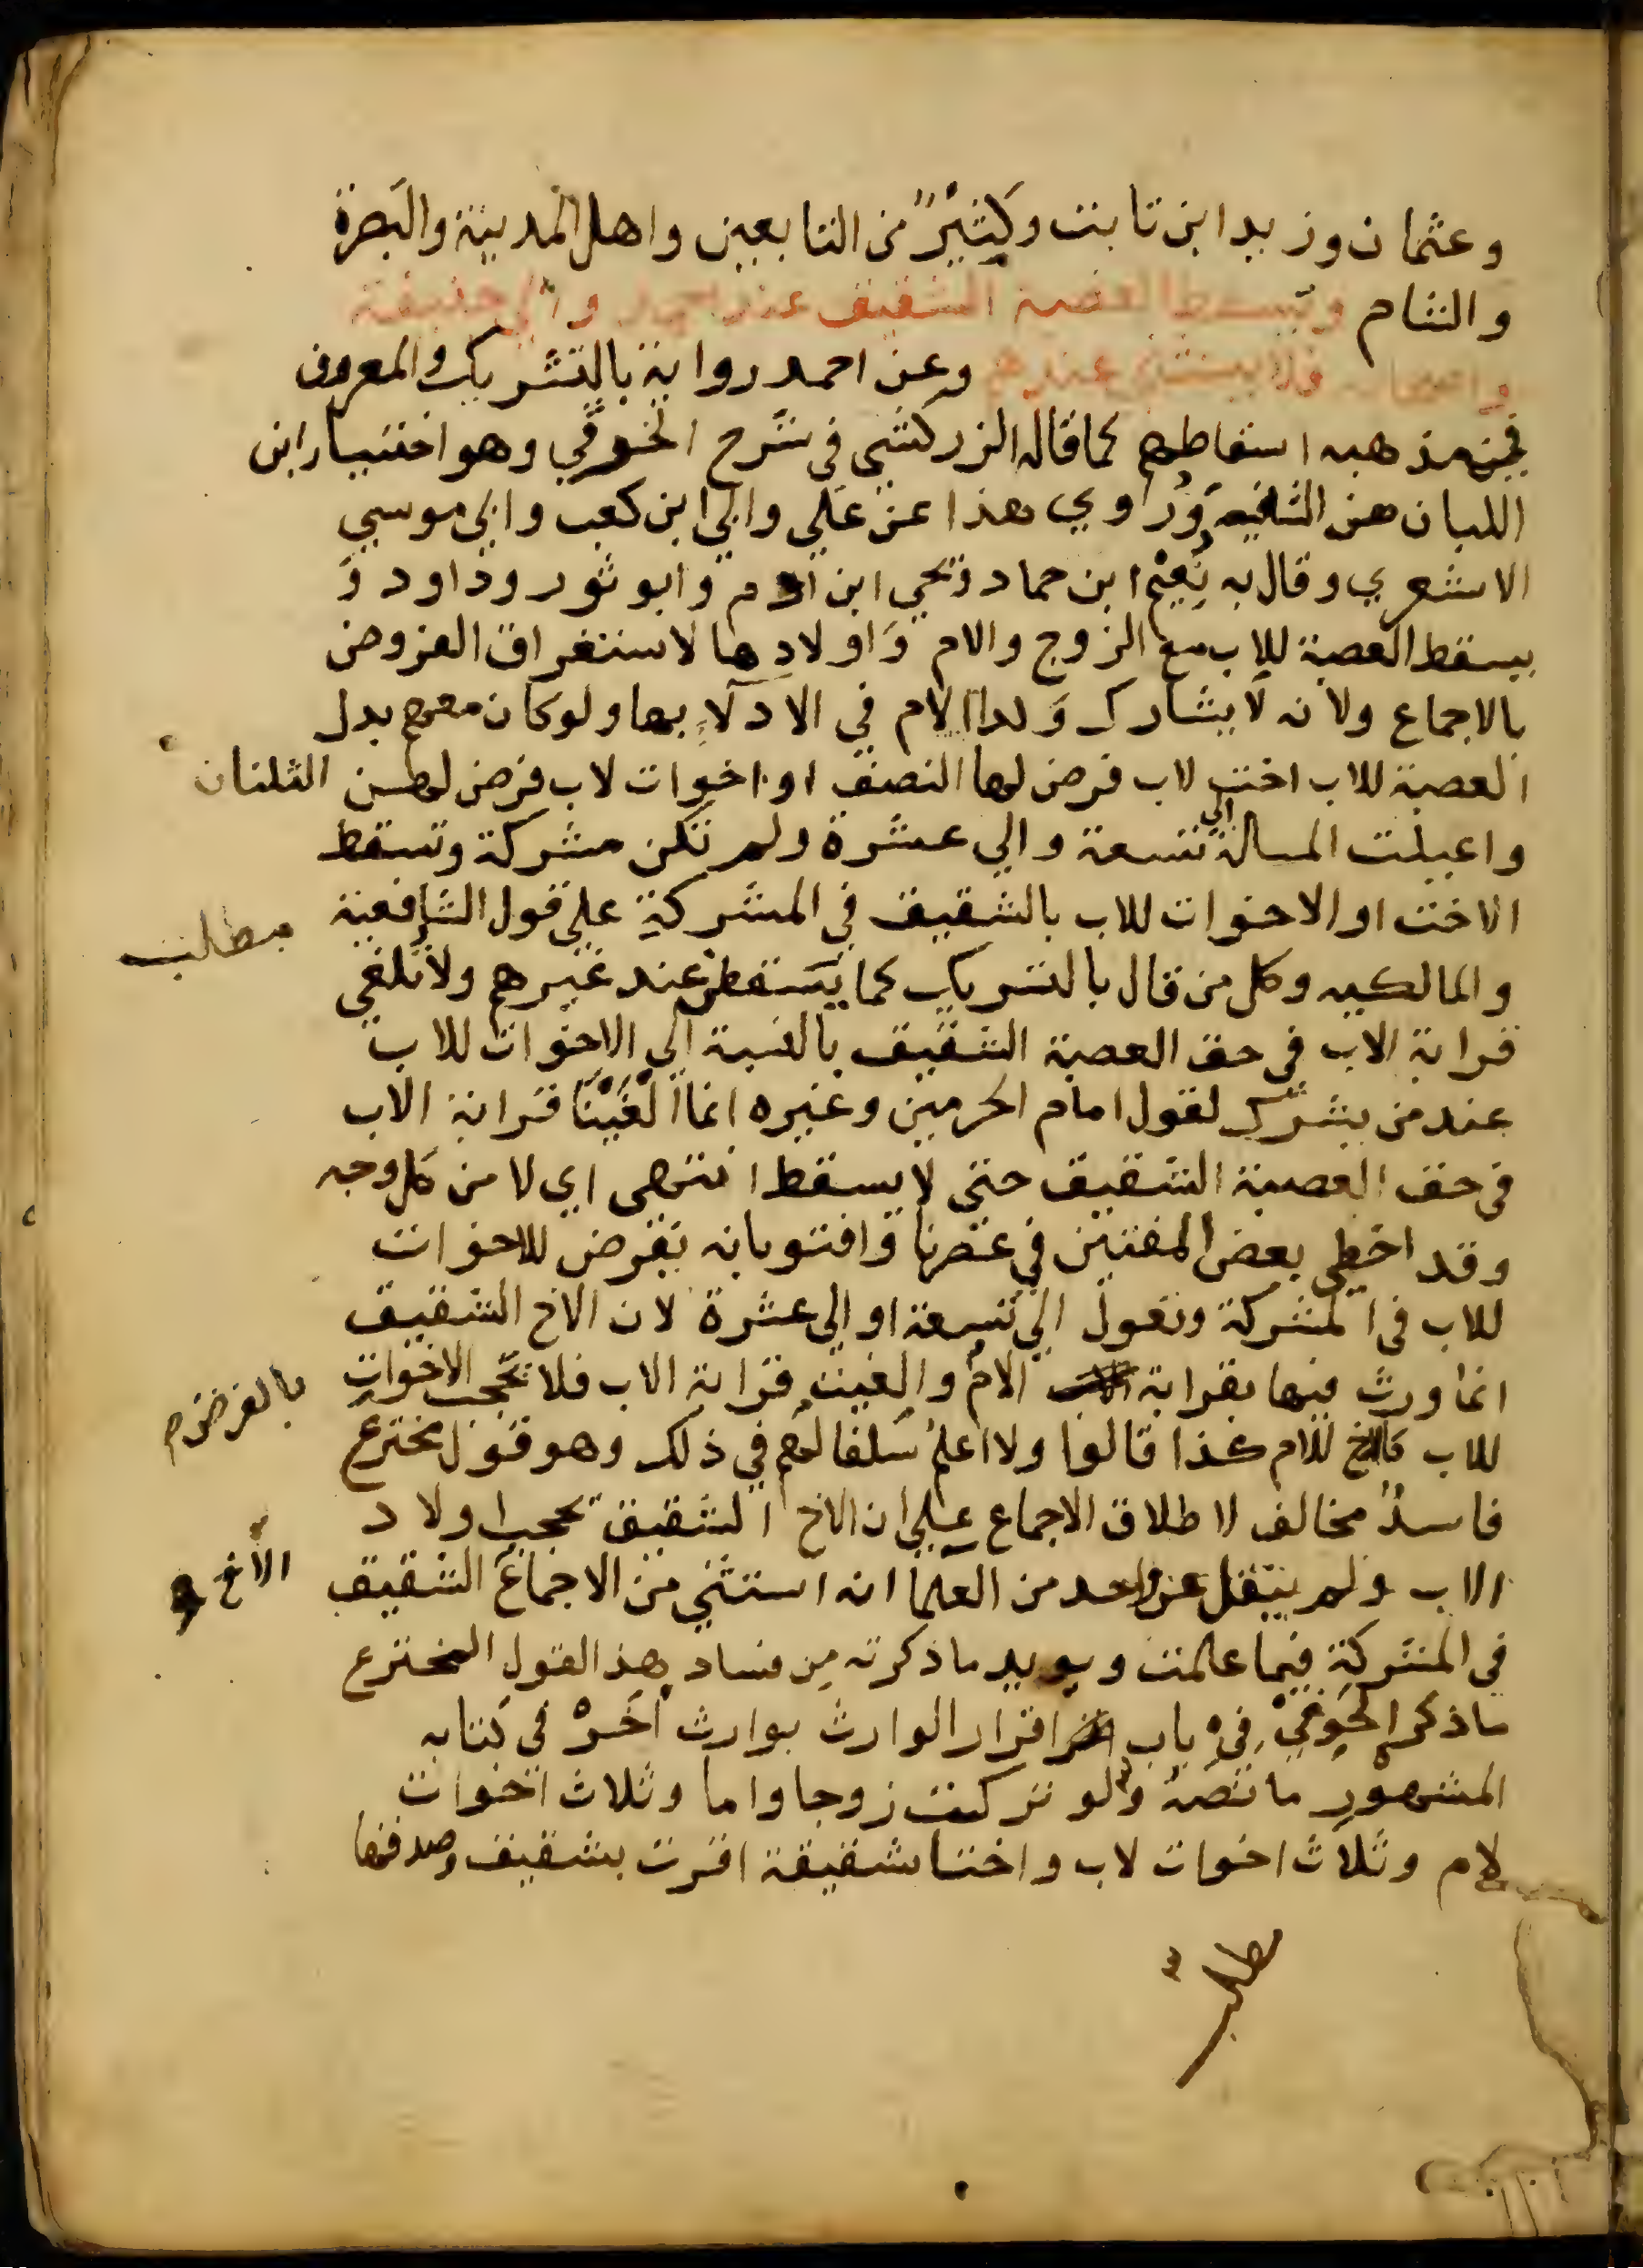 وعثمان وزيد ابن ثابت وكثيرٌ من التابعين واهل المدينة والبصرة
والشام ويسقط العصبة الشقيق عند احمد وابي حنيفة
واصحابه ولا يستثني عندهم وعن احمد رواية بالتشريك والمعروف
من مذهبه اسقاطهم كما قاله الزركشي في شرح الخرقي وهو اختيار ابن
اللبان من الشافعيه وروي هذا عن علي وابي ابن كعب وابي موسي
الاشعري وقال به نعيم ابن حماد ويحي ابن ادم وابو ثور وداود و
يسقط العصبة للاب مع الزوج والام واولادها لاستغراق الفروض
بالاجماع ولانه لا يشارك ولدا الام في الادلاء بها ولو كان معهم بدل
العصبة للاب اخت لاب فرض لها النصف او اخوات لاب فرض لهن الثلثان
واعيلت المسالة الي تسعة والي عشرة ولم تكن مشركة وتسقط
الاخت او الاخوات للاب بالشقيق في المشركة علي قول الشافعية
مطلب
والمالكيه وكل من قال بالتشريك كما يسقطن عند غيرهم ولا تلغي
قرابة الاب في حق العصبة الشقيق بالنسبة الي الاخوات للاب
عند من يشرك لقول امام الحرمين وغيره انما الغينا قرابة الاب
في حق العصبة الشقيق حتي لا يسقط انتهي اي لا من كل وجه
وقد اخطي بعض المفتين في عصرنا وافتو بانه يفرض للاخوات
للاب في المشركة وتعول الي تسعة او الي عشرة لان الاخ الشقيق
انما ورث فيها بقرابة الام والغيت قرابة الاب فلا تحجب الاخوات
بالفرض
للاب كالاخ للام كذا قالوا ولا اعلم سلفا لهم في ذلك وهو قول مخترع
فاسدٌ مخالف لاطلاق الاجماع علي ان الاخ الشقيق يحجب اولاد
الاب ولم ينقل عن واحد من العلما انه استثني من الاجماع الشقيق
الاخ
في المشركة فيما علمت ويويد ما ذكرته من فساد هذ القول المخترع
ما ذكر الحوفي في باب اقرار الوارث بوارث اخر في كتابه
المشهور ما نصه ولو تركت زوجا واما وثلاث اخوات
لام وثلاث اخوات لاب واختا شقيقة اقرت بشقيق وصدقتها